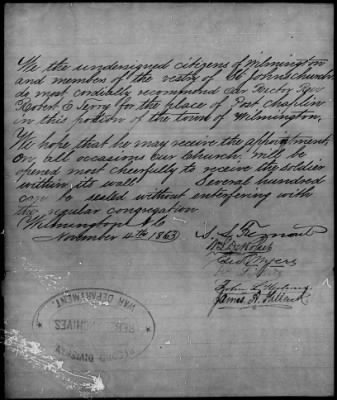 We the undersigned citizens of Wilmington
and member of the vestry of St Johns church
do most cordially recommend our Rector Rev
Robert E Terry for the place of Post chaplin
in this portion of the town of Wilmington.
We hope that he may receive the appointment
On all occasions our Church will be
opened most cheerfully to receive the soldier
within its wall Several hundred
can be seated without enterfering with
the regular congregation
Wilmington
November 4th 1863
Myers
John L
James A
RECORD DIVISION
ARCHIVES
WAR DEPARTMENT